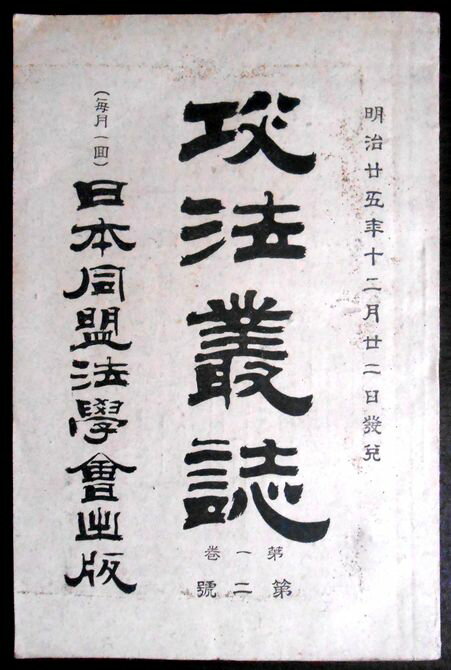 明治廿五年十二月廿二日發兌
攻法叢誌
第一卷
第二號
(每月一回)
日本同盟法學會出版